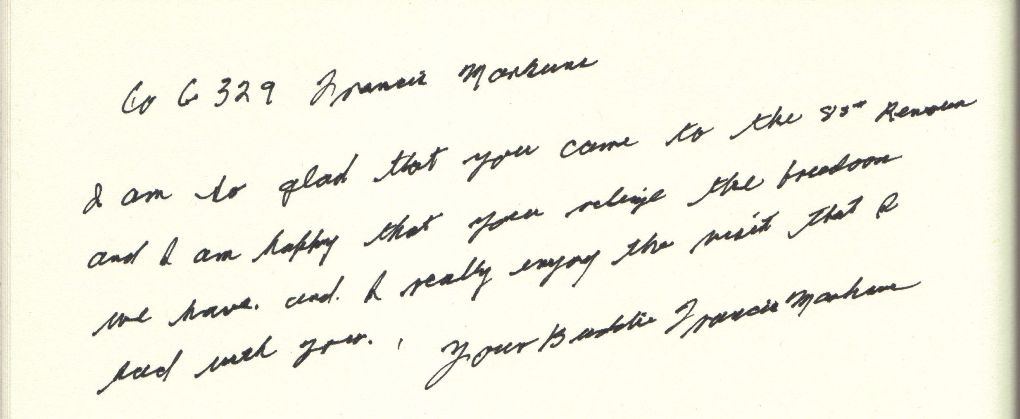 Co G 329 Francis
I am so glad that you came to the 83rd
and I am happy that you relize the freedom
we have. and. I really enjoy the visit that I
had with you. Your Buddie Francis